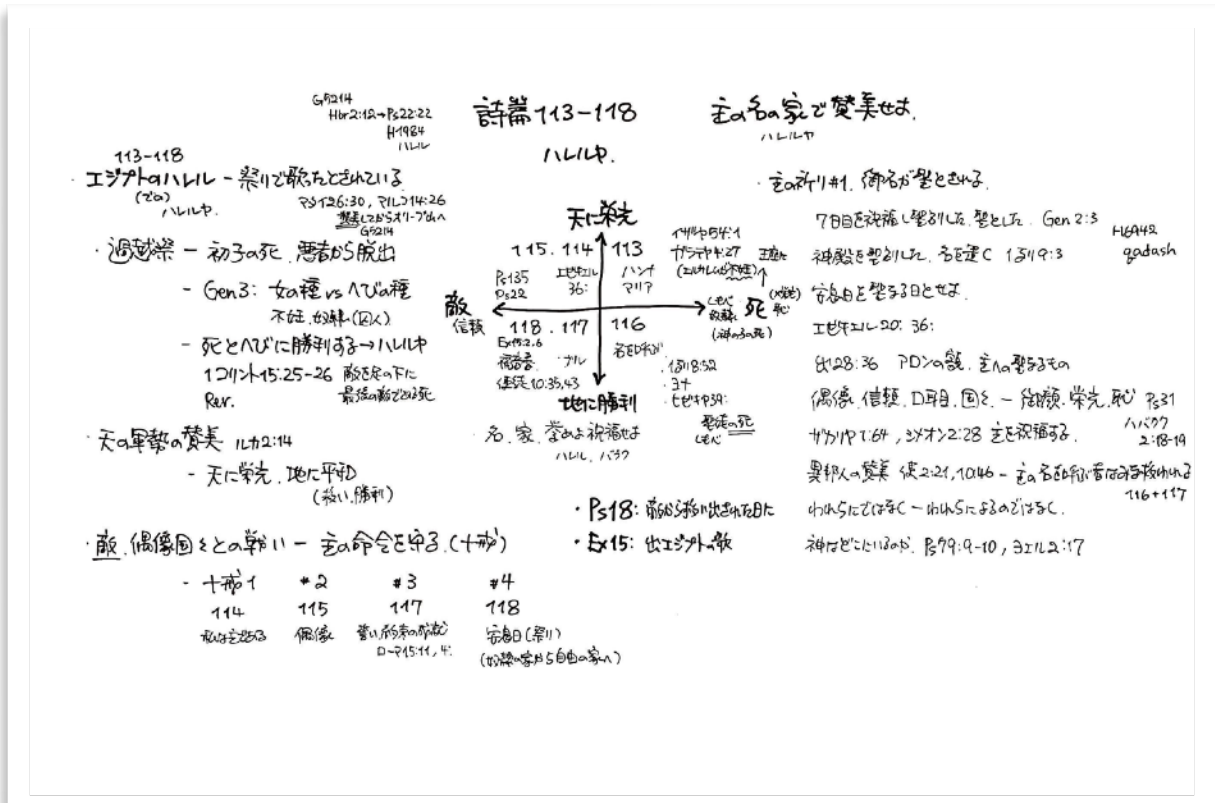 G5214
Hbr2:12→Ps22:22
H1984
ハレル
詩篇113-118
ハレルヤ.
主の名の家で賛美せよ.
ハレルヤ
113-118
・エジプトのハレル - 祭りで歌ったとされている
(での)
ハレルヤ.
マタイ26:30, マルコ14:26
賛美してからオリーブ山へ
G5214
・過越祭 - 初子の死. 悪者から脱出
- Gen3: 女の種 vs へびの種
不妊. 奴隷(囚人)
- 死とへびに勝利する→ハレルヤ
1コリント15:25-26 敵を足の下に
最後の敵である死
Rev.
・天の軍勢の賛美 ルカ2:14
- 天に栄光. 地に平和
(救い, 勝利)
・敵. 偶像国々との戦い - 主の命令を守る.(十戒)
- 十戒1 #2 #3 #4
114 115 117 118
私は主である 偶像 誓い, 約束の成就 安息日(祭り)
ローマ15:11, 4:
(奴隷の家から自由の家へ)
天に栄光
115.114 113
Ps135
Ps22
エゼキエル
36:
ハンナ
マリア
イザヤ54:1
ガラテヤ4:27
(エルサレムが不妊)
王座に
↑
敵
信頼
しもべ
奴隷
死
恥
(神の子の死)
118.117 116
Ex15:2.6
福音書.
使徒10:35,43
名を呼ぶ
・1列8:52
・ヨナ
・ヒゼキヤ39:
聖徒の死
しもべ
地に勝利
名. 家. 誉めよ祝福せよ
ハレル. バラク
・Ps18: 敵から救い出された日に
・Ex15: 出エジプトの歌
・主の祈り#1. 御名が聖とされる.
7日目を祝福し聖別した. 聖とした. Gen2:3
H6942
qadash
神殿を聖別した. 名を置く 1列9:3
安息日を聖なる日とせよ.
エゼキエル20: 36:
出28:36 アロンの額. 主への聖なるもの
偶像. 信頼. 口耳目. 国々. - 御顔. 栄光. 恥 Ps31
ハバクク
2:18-19
ザカリヤ1:64, シメオン2:28 主を祝福する.
異邦人の賛美 使2:21, 10:46 - 主の名を呼ぶ者はみな救われる
116+117
われらにではなく - われらによるのではなく.
神はどこにいるのか. Ps79:9-10, ヨエル2:17